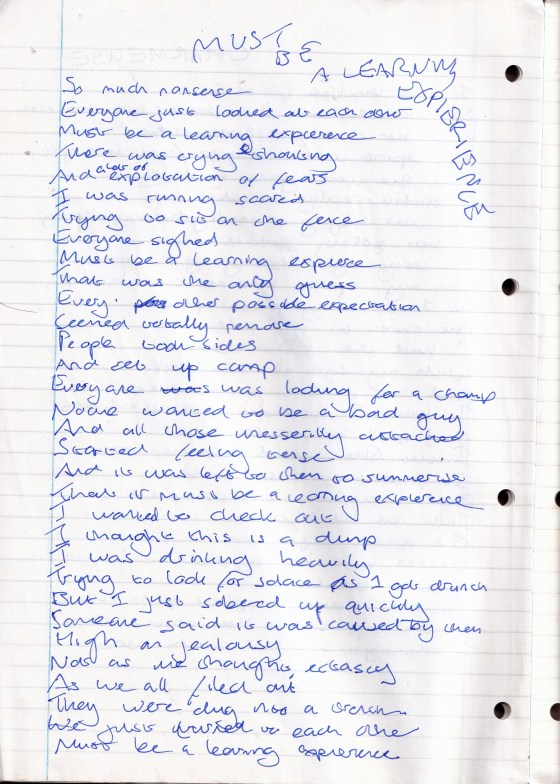 MUST BE
A LEARNING
EXPIERIENCE
So much nonsense
Everyone just looked at each other
Must be a learning expierence
There was crying & shouting
And a lot of exploitation of fears
I was running scared
Trying to sit on the fence
Everyone sighed
Must be a learning expierce
That was the only guess
Every other possible expectation
Seemed totally remove
People took sides
And set up camp
Everyone was was looking for a champ
Noone wanted to be a bad guy
And all those messerilly attached
Started feeling tense
And it was left to them to summerise
That it must be a learning expierence
I wanted to check out
I thought this is a dump
I was drinking heavily
Trying to look for solace as I got drunk
But I just sobered up quickly
Someone said it was caused by them
High on jealousy
Not as we thought, ectascy
As we all filed out
They were dug into a trench
We just turned to each other
Must be a learning experience